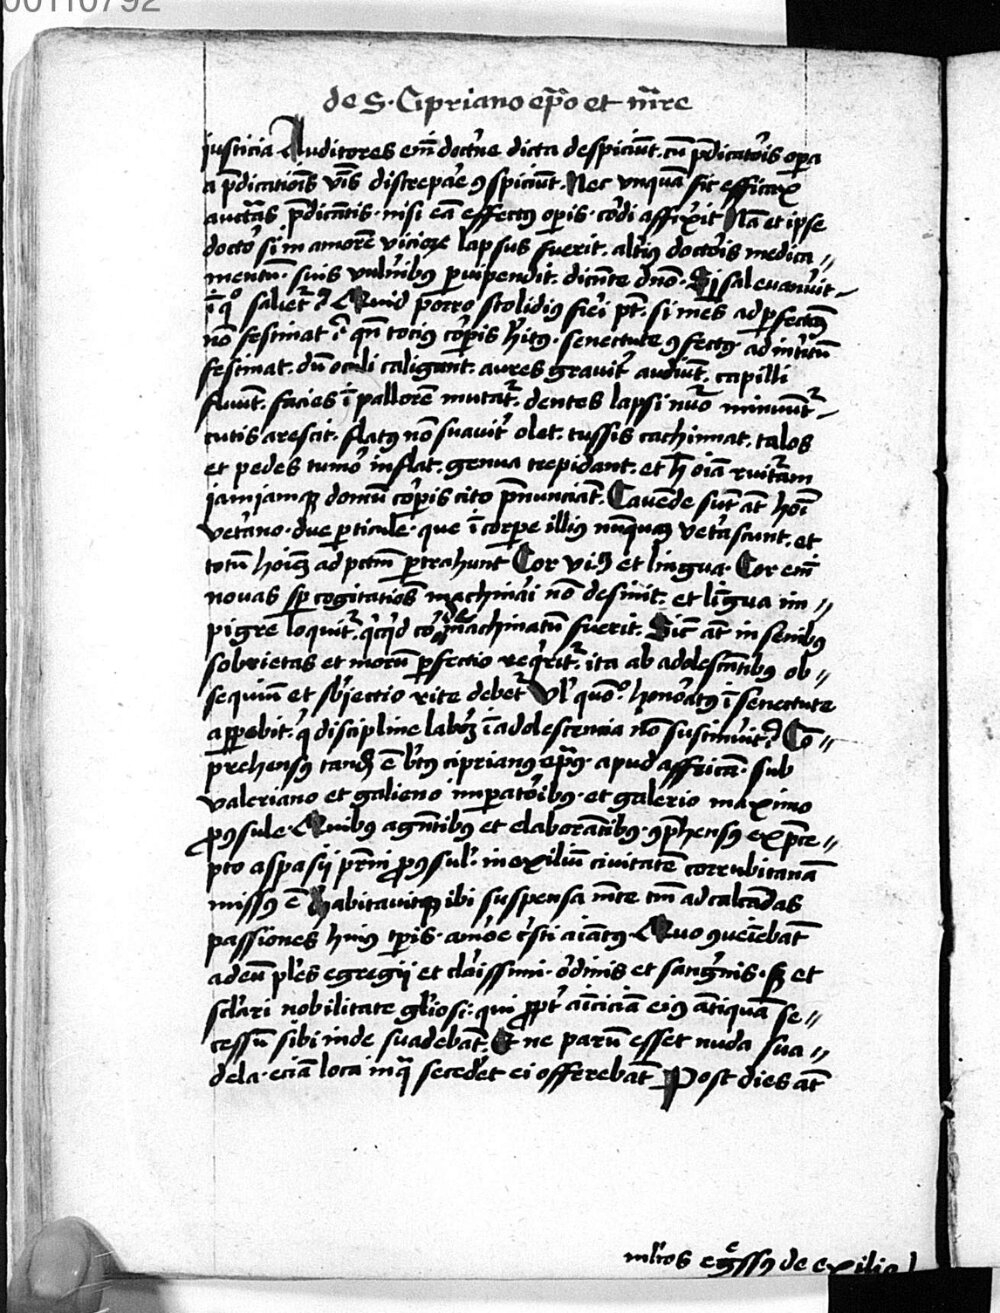 00110792
de S. Cipriano epo et mre
iusticia Auditores em doctrie dicta despiciut. cu pdicatois opa
a pdicatiois vis discrepare ꝯspiciut. Nec vnqua fit efficax
auctas pdicatis. nisi ea effectꝰ opis. codi affixit Na et ipse
docto si in amore vicioꝝ lapsus fuerit. altiꝰ doctois medica〃
mentu. suis vulnibꝰ puipendit. dicete dno. Si sal euanuit
i qo saliet? Quid porro stolidiꝰ fiei pt. si mes ad pfectu
no festinat i qn totiꝰ copis hitꝰ. senectute ꝯfectꝰ ad intitu
festinat. du oculi caligant. aures grauit audiut. capilli
fluut. facies i pallore mutat. dentes lapsi nuo minuut
cutis arescit. flatꝰ no suauit olet. tussis cachinnat. talos
et pedes tumo inflat. genua trepidant. et h oia ruitam
iamiamqꝫ domu copis cito pnunciat. Cauede sut at hoi
veterano. due pticule. que i corpe illiꝰ nuquaꝫ vetascunt. et
totu hoieꝫ ad pctm ptrahunt Cor viꝫ et lingua. Cor em
nouas sp cogitatiois machinari no desinit. et ligua im〃
pigre loquit. qcqd cor machinatu fuerit. Sic at in senibꝰ
sobrietas et moru pfectio reqrit. ita ab adolescetibꝰ ob〃
sequiu et sbiectio rite debet Vl quo honoatꝰ i senectute
appebit. q discipline laboeꝫ i adolescencia no sustinuit? Co〃
prehensꝰ tandē e btꝰ ciprianꝰ epꝰ. apud affrica. sub
valeriano et galieno impatoibꝰ. et galerio maximo
pꝯsule. Quibꝰ agntibꝰ et elaboratibꝰ. ꝯphensꝰ ex pce〃
pto aspasij prni pꝯsul. in exiliu ciuitate corrubitana
missꝰ e Habitauitqꝫ ibi suspensa mte tm ad calcadas
passiones huiꝰ tpis. amoe cristi aiatꝰ. Quo ꝯueiebat
ad eu ples egregij et claissimi. odinis et sangnis. sꝫ et
sclari nobilitate gliosi: qui ppt aiciciā eiꝰ atiqua se〃
cessu sibi inde suadebat. Et ne paru esset nuda sua〃
dela. ecia loca in q secedet ei offerebat Post dies at
mltos egssꝰ de exilio